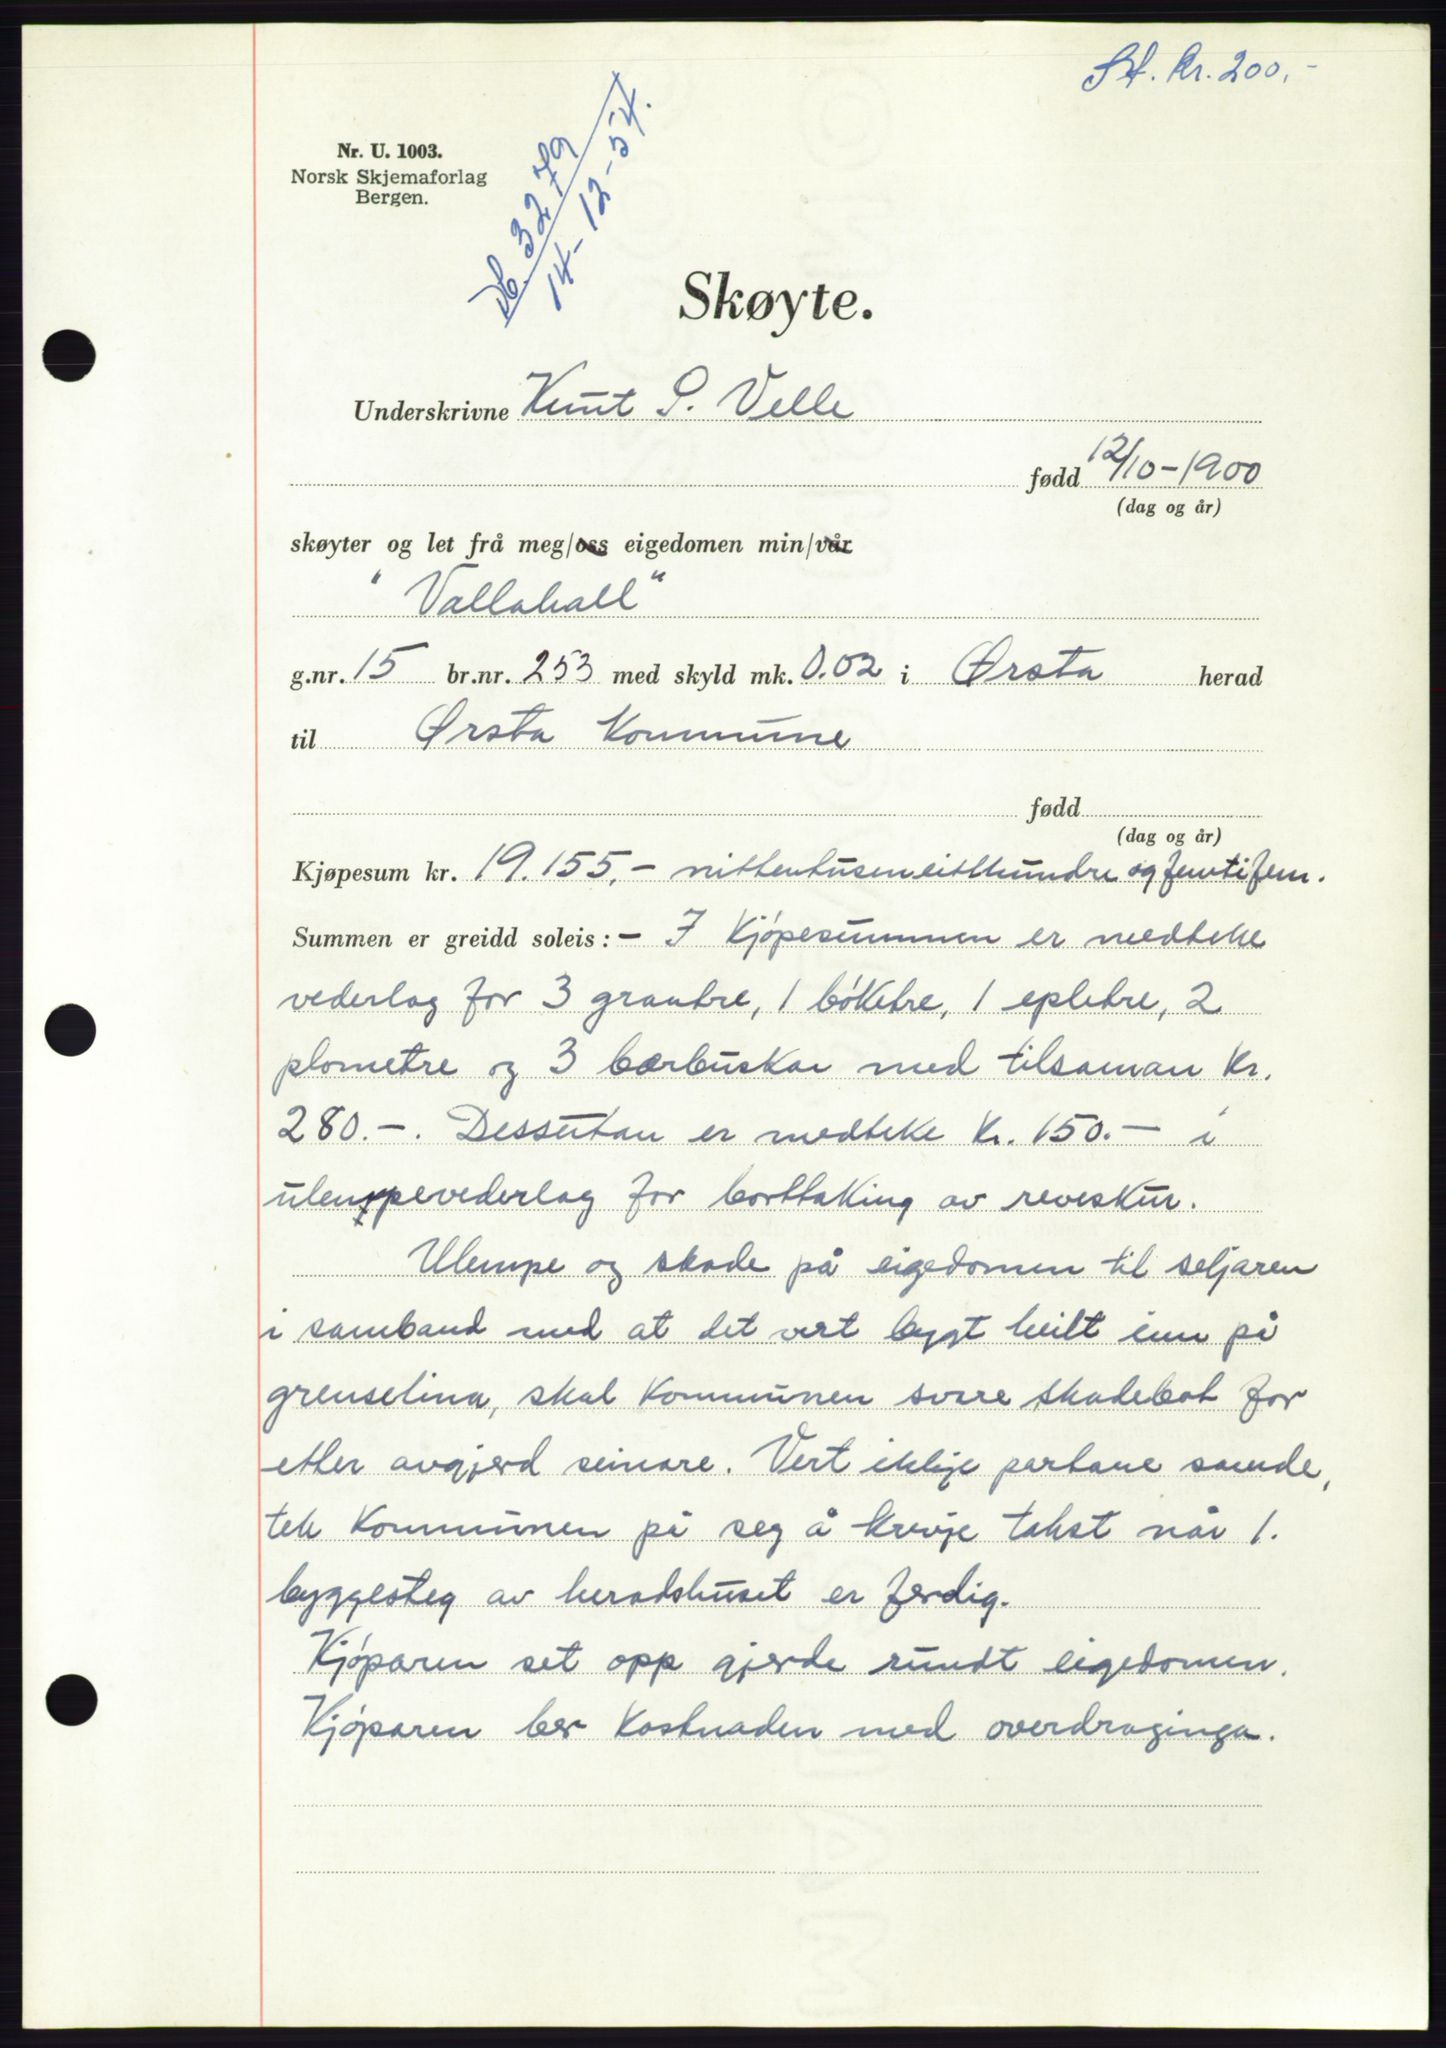 St. kr. 200,-
Nr. U. 1003.
Norsk Skjemaforlag
Bergen.
Db. 3279
14-12-54.
Skøyte.
Underskrivne Knut S. Velle
fødd 12/10-1900
(dag og år)
skøyter og let frå meg/oss eigedomen min/vår
"Vallahall"
g.nr. 15 br.nr. 253 med skyld mk. 0.02 i Ørsta herad
til Ørsta Kommune
fødd
(dag og år)
Kjøpesum kr. 19.155,- nittentuseneitthundre og femtifem.
Summen er greidd soleis: - I Kjøpesummen er medteke
vederlag for 3 grantre, 1 bøketre, 1 epletre, 2
plometre og 3 bærbuskar med tilsaman kr.
280.-. Dessutan er medteke kr. 150.- i
ulempevederlag for borttaking av reveskur.
Ulempe og skade på eigedomen til seljaren
i samband med at det vert bygt heilt inn på
grenselina, skal Kommunen svare skadebot for
etter avgjerd seinare. Vert ikkje partane samde,
tek Kommunen på seg å krevje takst når 1.
byggesteg av heradshuset er ferdig.
Kjøparen set opp gjerde rundt eigedomen.
Kjøparen ber kostnaden med overdraginga.